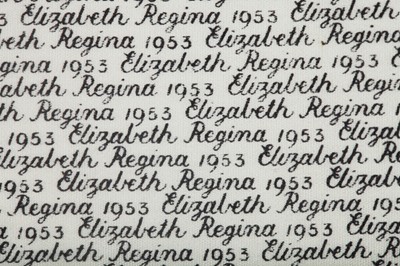 Regina 1953
53 Elizabeth Regina 1953 Elizabeth
eth Regina 1953 Elizabeth Regina
gina 1953 Elizabeth Regina 1953 E
abeth Regina 1953 Elizabeth Regina
th Regina 1953 Elizabeth Regina 1
1953 Elizabeth Regina 1953 Elizabeth
Elizabeth Regina 1953 Elizabeth Re
1953 Elizabeth Regina 1953 Elizabeth
Regina 1953 Elizabeth Regina 195
na 1953 Elizabeth Regina 1953 Eliz
Elizabeth Regina 1953 Elizabeth